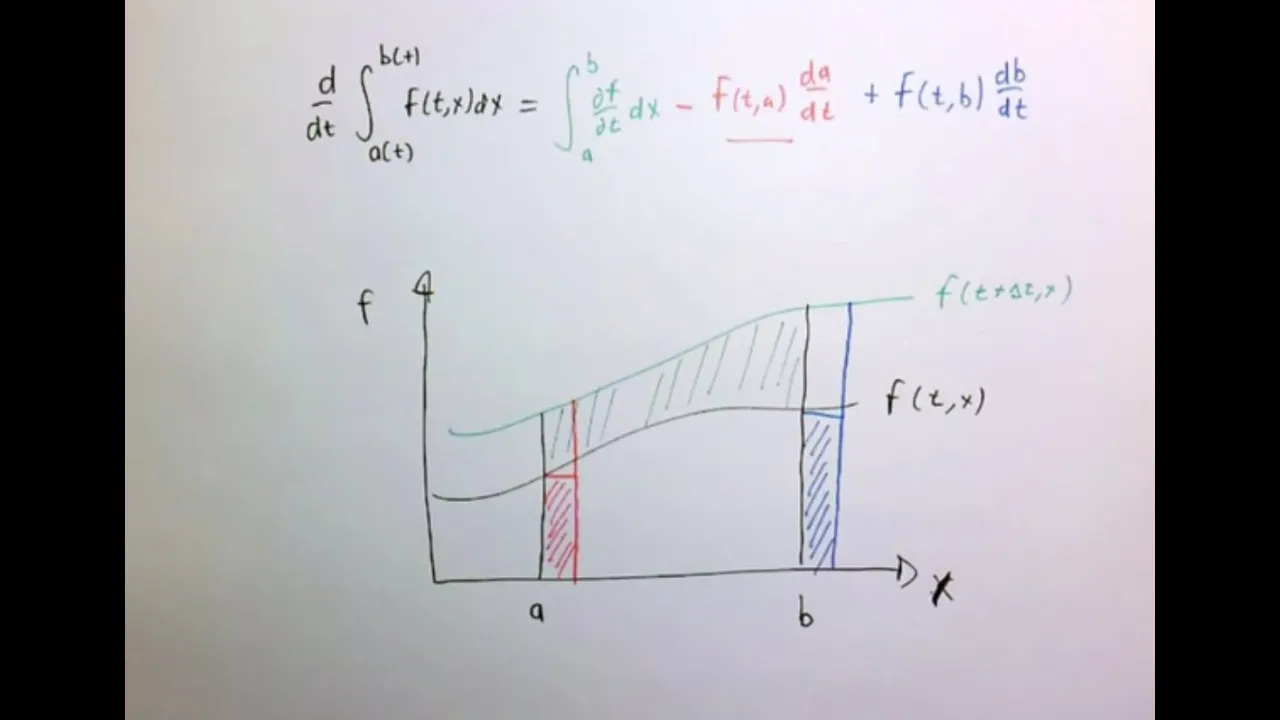 d/dt ∫_{a(t)}^{b(t)} f(t,x)dx = ∫_a^b ∂f/∂t dx − f(t,a) da/dt + f(t,b) db/dt
f
f(t+Δt,x)
f(t,x)
a
b
x